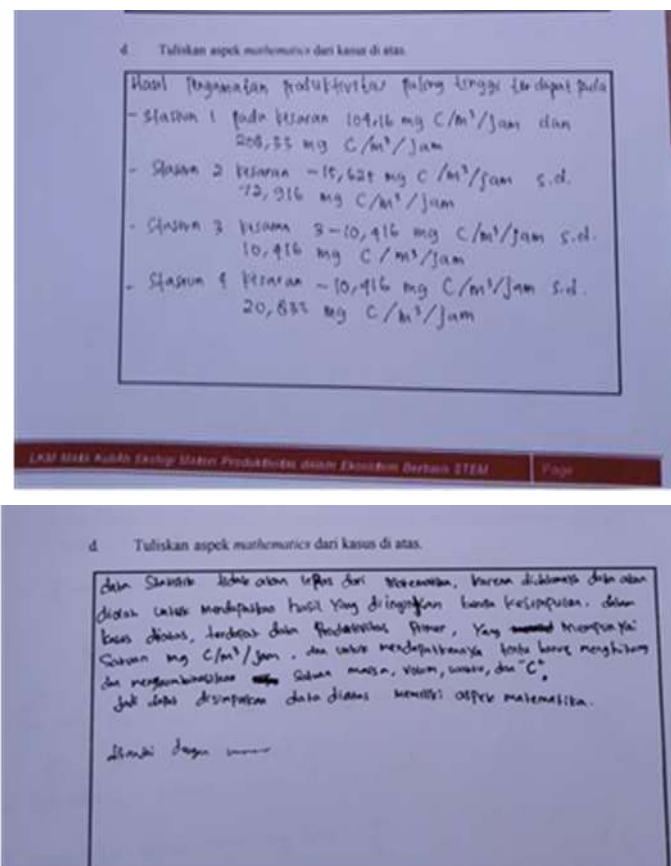 d. Tuliskan aspek mathematics dari kasus di atas.
Hasil Pengamatan Produktivitas paling tinggi terdapat pada
- Stasiun 1 pada kisaran 104,16 mg C/m³/jam dan
208,33 mg C/m³/jam
- Stasiun 2 kisaran -15,625 mg C/m³/jam s.d.
72,916 mg C/m³/jam
- Stasiun 3 kisaran 3-10,416 mg C/m³/jam s.d.
10,416 mg C/m³/jam
- Stasiun 4 kisaran -10,416 mg C/m³/jam s.d.
20,833 mg C/m³/jam
LKM Mata Kuliah Ekologi Materi Produktivitas dalam Ekosistem Berbasis STEM Page
d. Tuliskan aspek mathematics dari kasus di atas.
data Statistik tidak akan lepas dari Matematika, karena data akan
diolah untuk mendapatkan hasil yang diinginkan kesimpulan. dalam
kasus diatas, terdapat data Produktivitas Primer, Yang mempunyai
Satuan mg C/m³/jam, dan untuk mendapatkannya tentu harus menghitung
dan mengkombinasikan Satuan massa, volum, waktu, dan "C".
Jadi dapat disimpulkan data diatas memiliki aspek matematika.
ditandai dengan